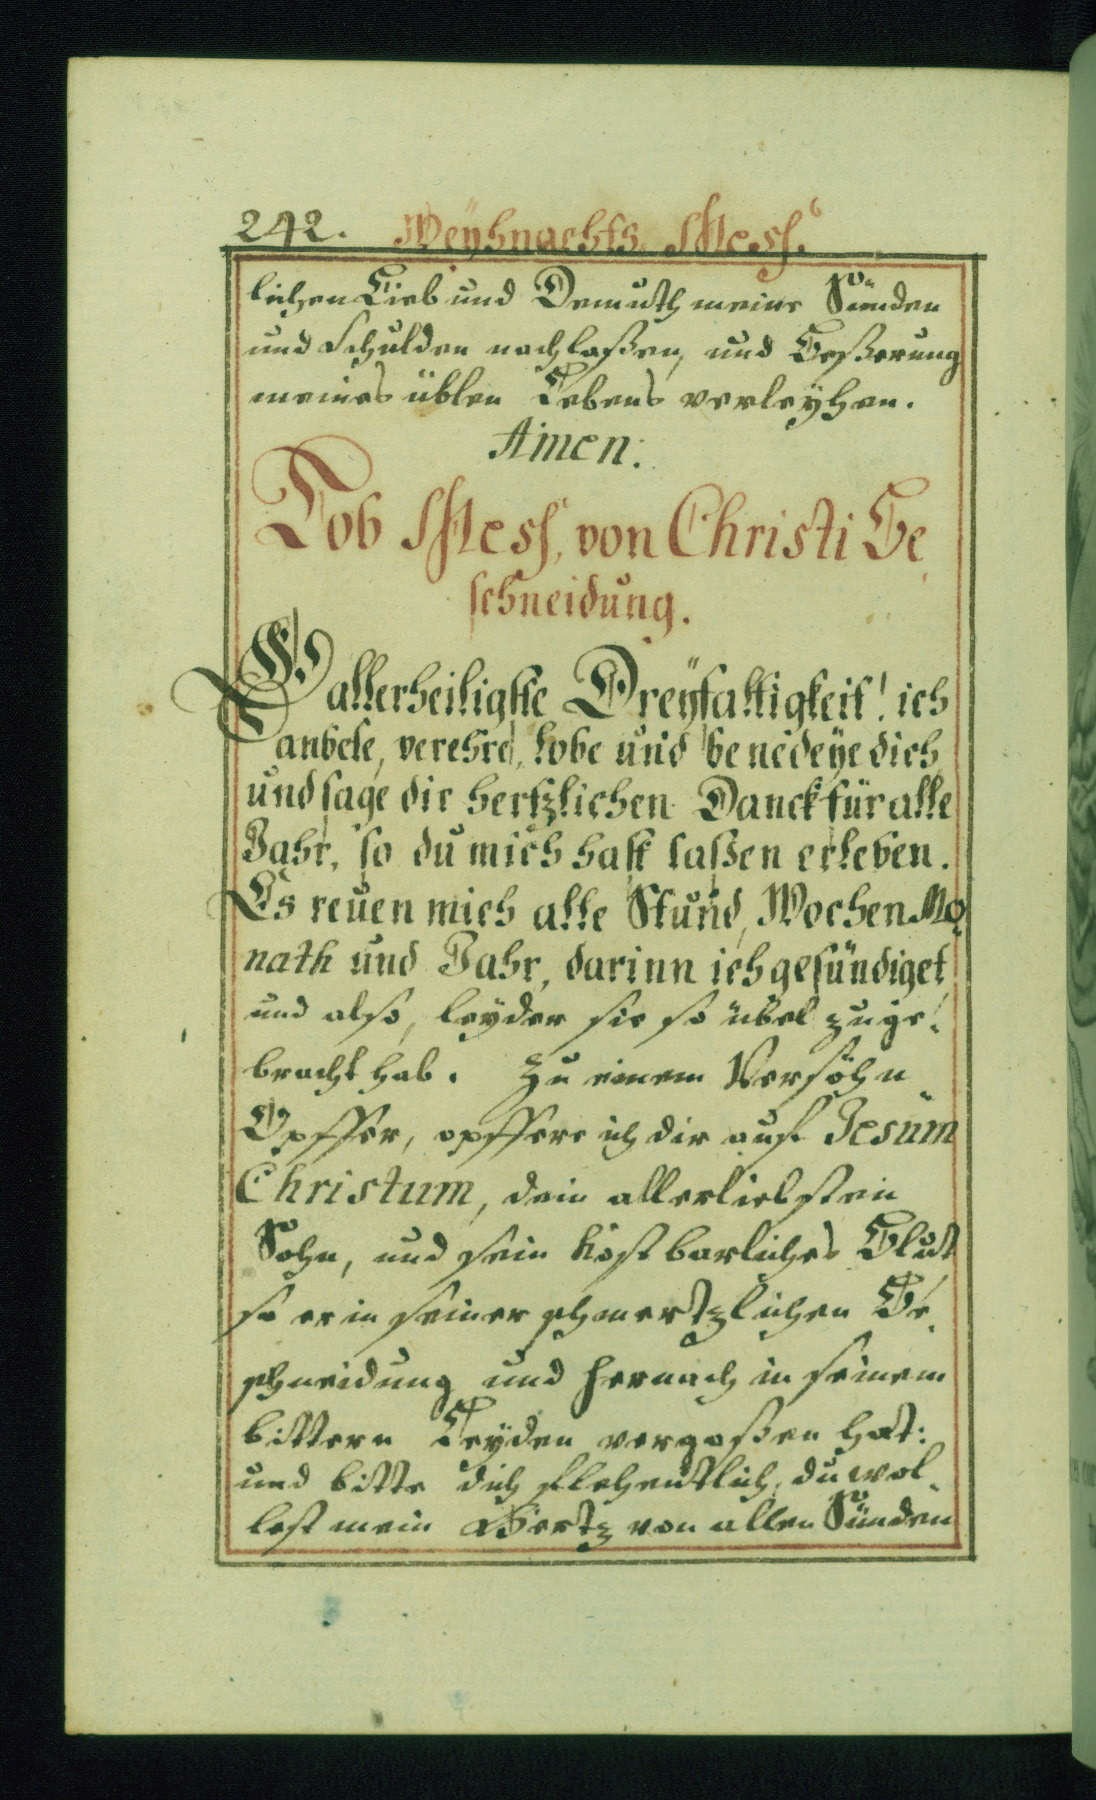 242. Weyhnachts Mess.
lichen Lieb und Demuth meine Sünden
und Schulden nachlaßen, und Beßerung
meines üblen Lebens verleyhen.
Amen.
Lob Mess, von Christi Be
schneidung.
O allerheiligste Dreyfaltigkeit! ich
anbete, verehre, lobe und benedeye dich
und sage dir hertzlichen Danck für alle
Jahr, so du mich hast laßen erleben.
Es reuen mich alle Stund, Wochen Mo
nath und Jahr, darinn ich gesündiget
und also, leyder sie so übel zuge
bracht hab. Zu einem Versöhn
Opffer, opffere ich dir auf Jesum
Christum, dein allerliebstein
Sohn, und sein kostbarliches Blut
so er in seiner schmertzlichen Be
schneidung und hernach in seinem
bittern Leyden vergoßen hat:
und bitte dich flehentlich, du wol
lest mein Hertz von allen Sünden